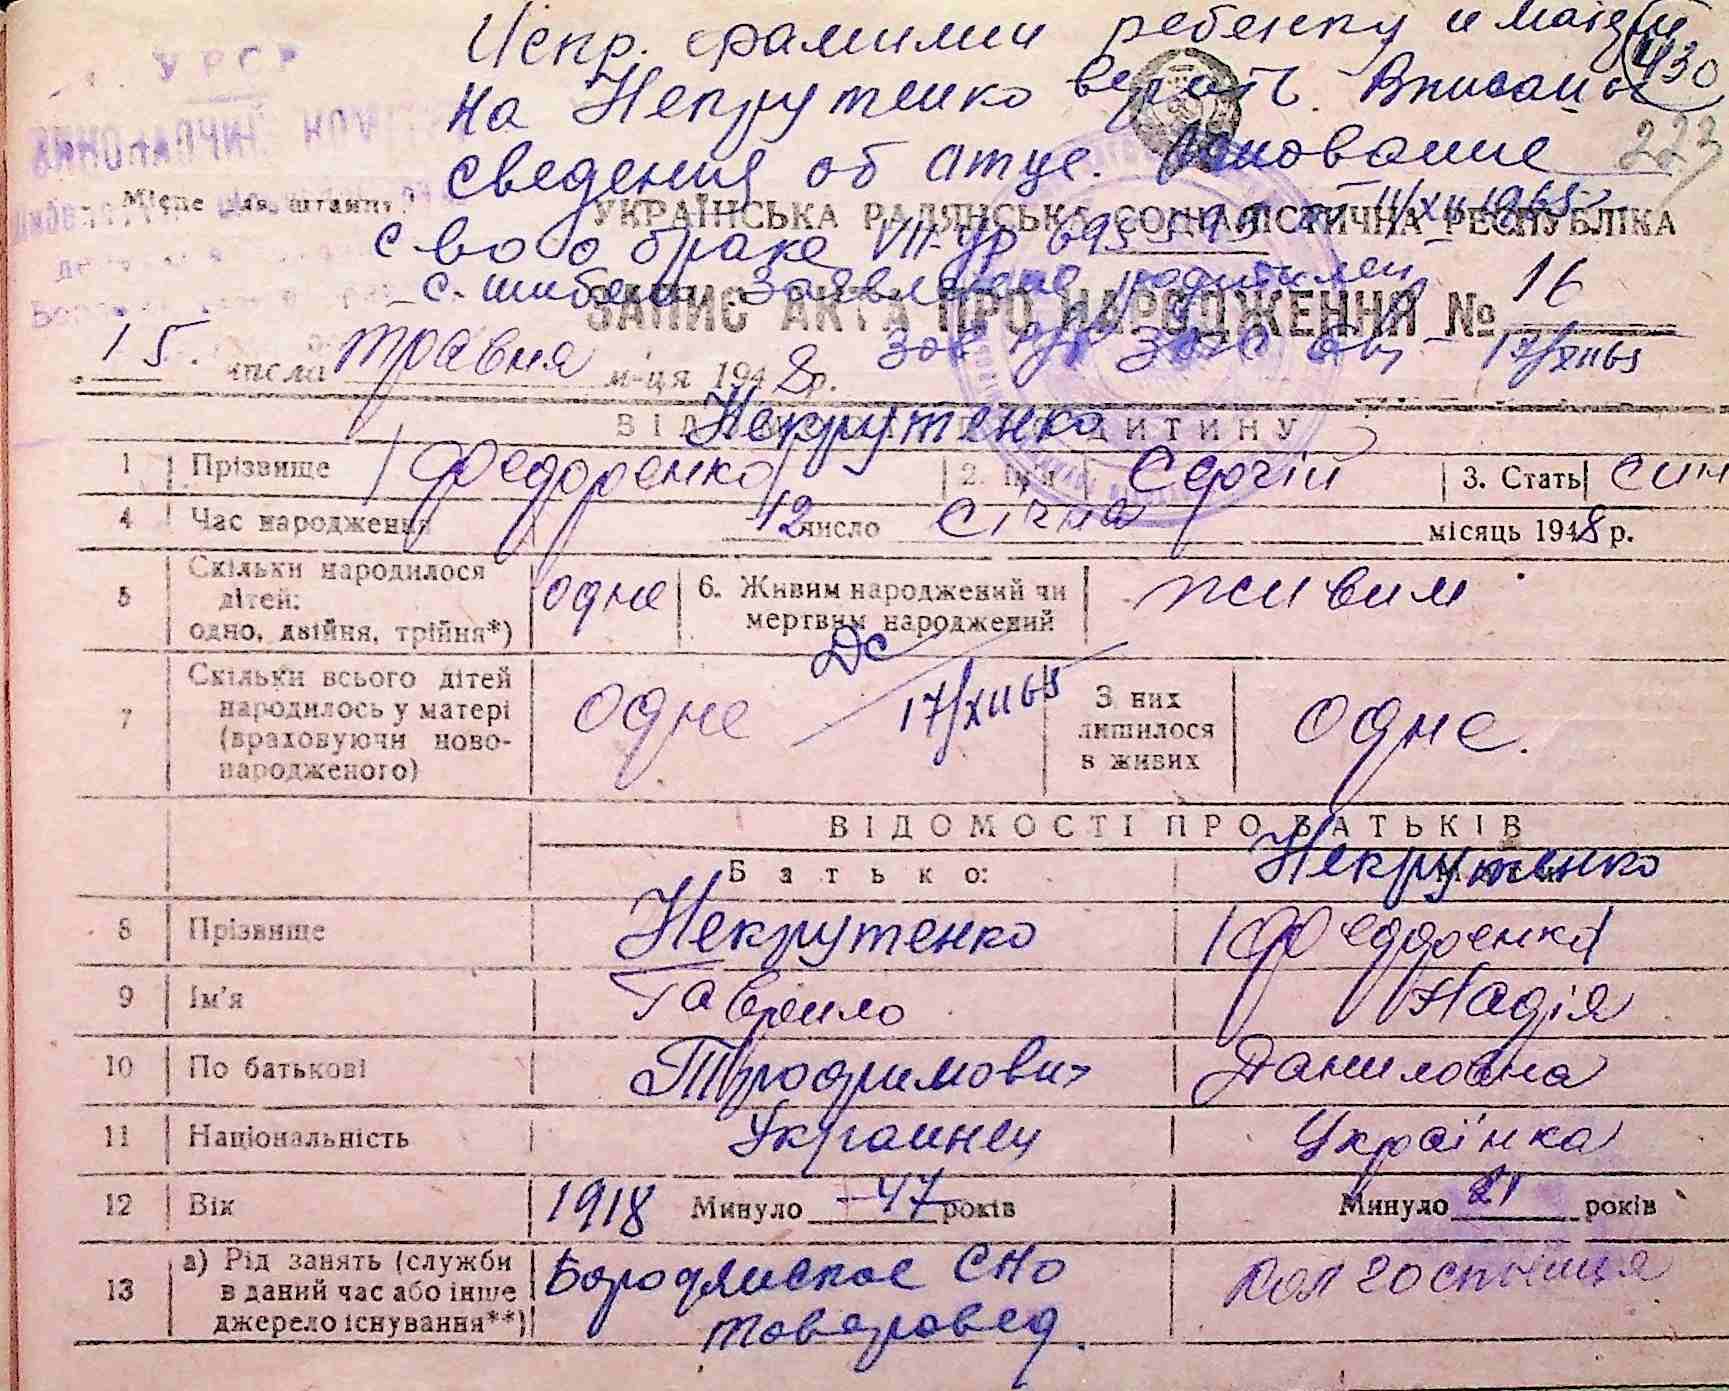 Испр. фамилии ребенку и матери
430
на Некрутенко верить. Вписаны
223
сведения об отце. Основание
Місце для штампу
УКРАЇНСЬКА РАДЯНСЬКА СОЦІАЛІСТИЧНА РЕСПУБЛІКА
с во о браке VII-УР 695595 от 11/XII 1965
заявление родителей
ЗАПИС АКТА ПРО НАРОДЖЕННЯ № 16
17/XII65
15. числа травня м-ця 1948 р.
Некрутенко
1 Прізвище /Федоренко/ 2. Ім'я Сергій 3. Стать син
4 Час народження 12 число січня місяць 1948 р.
5 Скільки народилося дітей: одно, двійня, трійня*) одне 6. Живим народжений чи мертвим народжений живим
ДС 17/XII65
7 Скільки всього дітей народилось у матері (враховуючи новонародженого) одне З них лишилося в живих одне.
ВІДОМОСТІ ПРО БАТЬКІВ
Батько: Некрутенко
8 Прізвище Некрутенко /Федоренко/
9 Ім'я Гаврило Надія
10 По батькові Трофимович Даниловна
11 Національність Украинец Українка
12 Вік 1918 Минуло 47 років Минуло 21 років
13 а) Рід занять (служби в даний час або інше джерело існування**) Бородянское СПО товаровед. колгоспниця